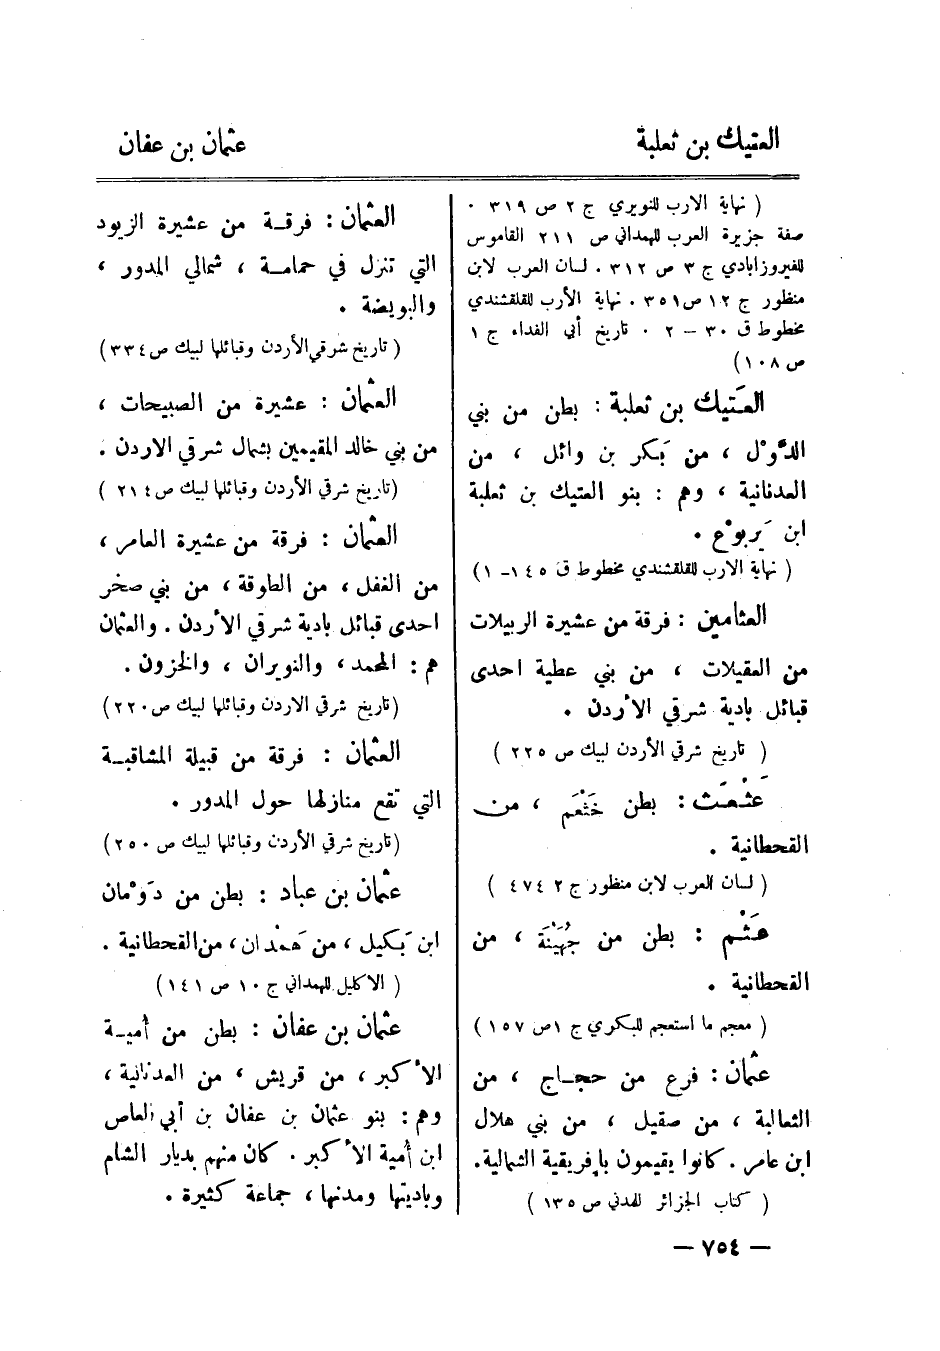 العتيك بن ثعلبة
عثمان بن عفان
( نهاية الارب للنويري ج ٢ ص ٣١٩ .
صفة جزيرة العرب للهمداني ص ٢١١ القاموس
للفيروزابادي ج ٣ ص ٣١٢ . لسان العرب لابن
منظور ج ١٢ ص ٣٥١ . نهاية الأرب للقلقشندي
مخطوط ق ٣٠ – ٢ . تاريخ أبي الفداء ج ١
ص ١٠٨)
العَتيك بن ثعلبة : بطن من بني
الدُّوْل ، من بَكر بن وائل ، من
العدنانية ، وهم : بنو العتيك بن ثعلبة
ابن يَربوْع .
( نهاية الارب للقلقشندي مخطوط ق ١٤٥ – ١)
العثامين : فرقة من عشيرة الربيلات
من العقيلات ، من بني عطية احدى
قبائل بادية شرقي الأردن .
( تاريخ شرقي الأردن لبيك ص ٢٢٥ )
عَثْعَث : بطن خَثْعَم ، من
القحطانية .
( لسان العرب لابن منظور ج ٢ ٤٧٤ )
عَثْم : بطن من جُهَيْنَة ، من
القحطانية .
( معجم ما استعجم للبكري ج ١ ص ١٥٧ )
عثمان : فرع من حجاج ، من
الثعالبة ، من صقيل ، من بني هلال
ابن عامر . كانوا يقيمون بإفريقية الشمالية .
( كتاب الجزائر للمدني ص ١٣٥ )
العثمان : فرقة من عشيرة الزيود
التي تنزل في حمامة ، شمالي المدور ،
والبويضة .
( تاريخ شرقي الأردن وقبائلها لبيك ص ٣٣٤)
العثمان : عشيرة من الصبيحات ،
من بني خالد المقيمين بشمال شرقي الاردن .
(تاريخ شرقي الأردن وقبائلها لبيك ص ٢١٤ )
العثمان : فرقة من عشيرة العامر ،
من الغفل ، من الطوقة ، من بني صخر
احدى قبائل بادية شرقي الأردن . والعثمان
هم : المحمد ، والنويران ، والخزون .
(تاريخ شرقي الاردن وقبائلها لبيك ص ٢٢٠)
العثمان : فرقة من قبيلة المشاقبة
التي تقع منازلها حول المدور .
(تاريخ شرقي الأردن وقبائلها لبيك ص ٢٥٠)
عثمان بن عباد : بطن من دَوْمان
ابن بَكيل ، من هَمْدان ، من القحطانية .
( الاكليل للهمداني ج ١٠ ص ١٤١)
عثمان بن عفان : بطن من أمية
الأكبر ، من قريش ، من العدنانية ،
وهم : بنو عثمان بن عفان بن أبي العاص
ابن أمية الأكبر . كان منهم بديار الشام
وباديتها ومدنها ، جماعة كثيرة .
— ٧٥٤ —